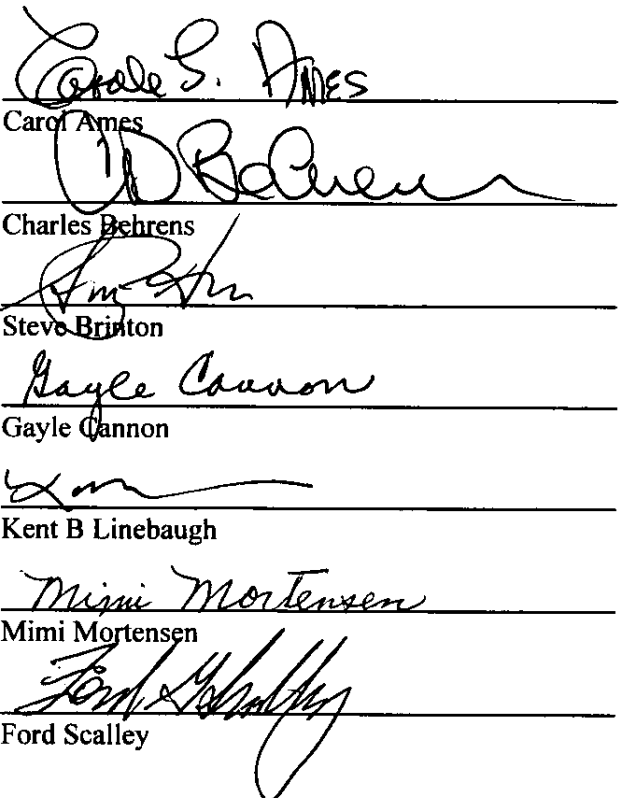 Carole S. Ames
Carol Ames
Charles Behrens
Steve Brinton
Gayle Cannon
Gayle Cannon
Kent B Linebaugh
Mimi Mortensen
Mimi Mortensen
Ford Scalley